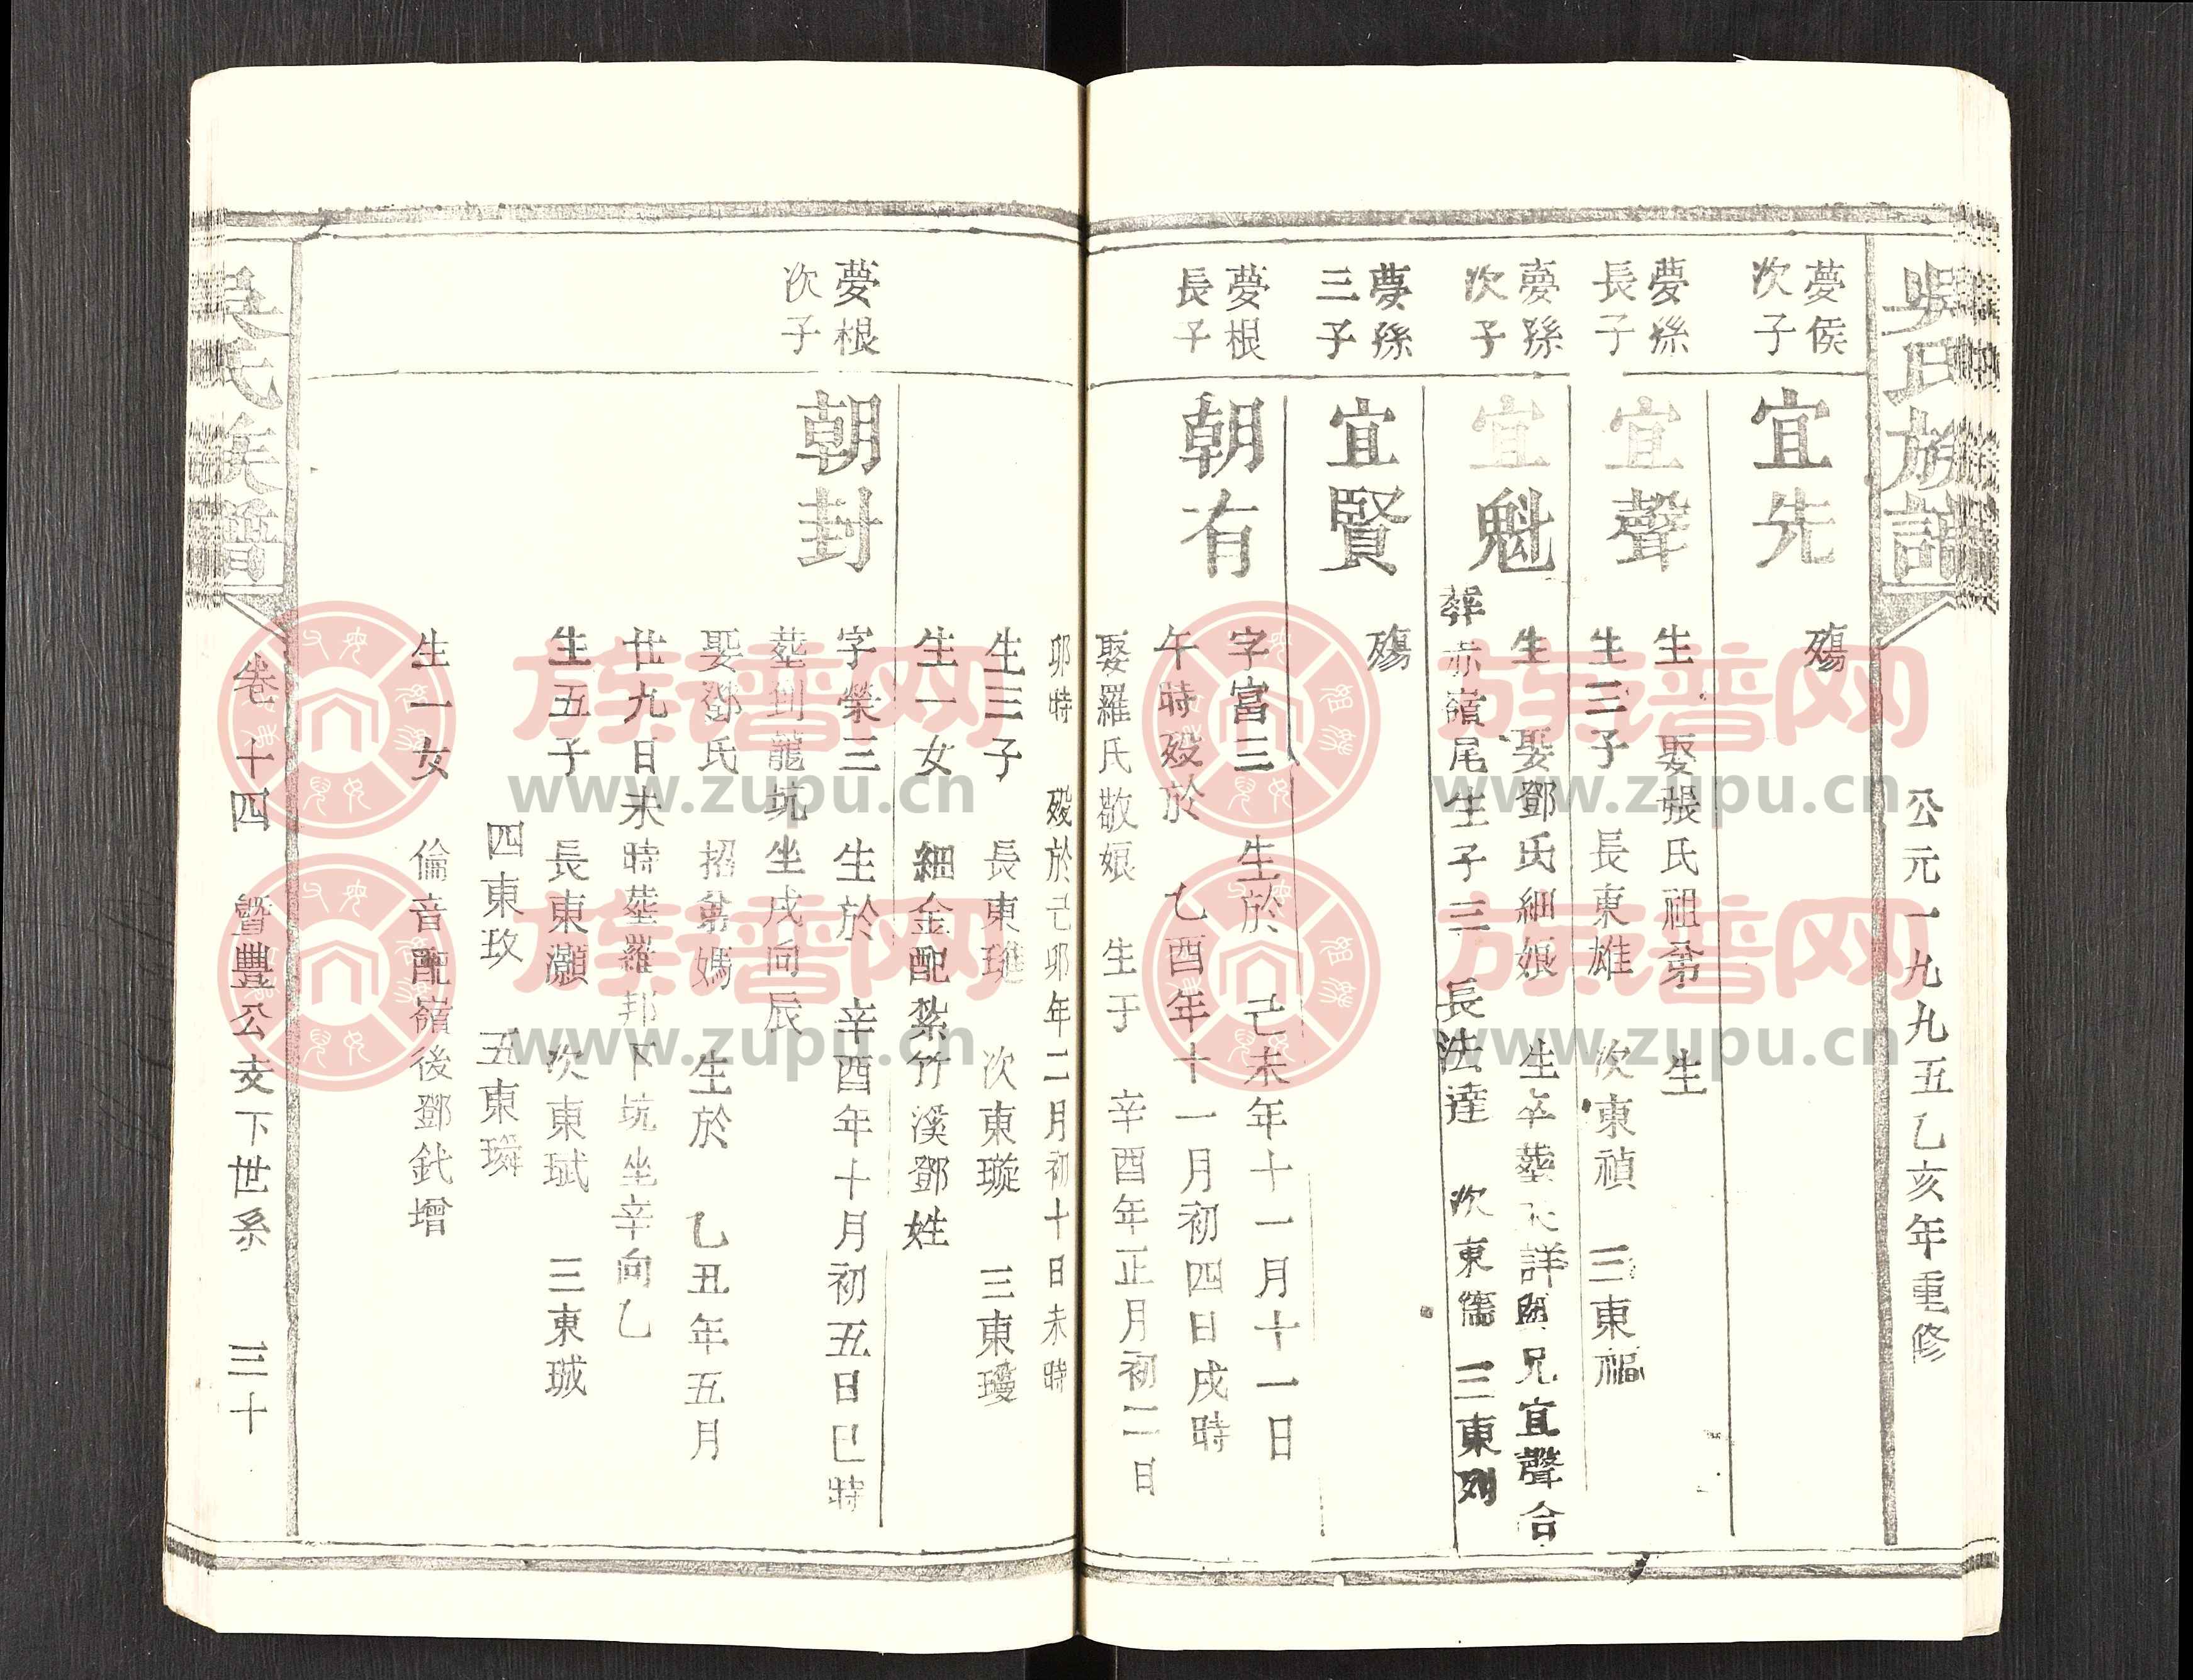 吳氏族譜
公元一九九五乙亥年重修
夢侯
次子
宜先
殤
夢孫
長子
宜聲
生 娶張氏祖第 生
生三子 長東雄 次東禎 三東福
夢孫
次子
宜魁
生 娶鄧氏細娘 生卒塟不詳與兄宜聲合
葬赤嶺尾生子三 長法達 次東儒 三東列
夢孫
三子
宜賢
殤
夢根
長子
朝有
字富三 生於 己未年十一月十一日
午時歿於 乙酉年十一月初四日戌時
娶羅氏敬娘 生于 辛酉年正月初二日
卯時 歿於己卯年二月初十日未時
生三子 長東璡 次東璇 三東璦
生一女 細金配紮竹溪鄧姓
夢根
次子
朝封
字榮三 生於 辛酉年十月初五日巳時
塟到龍坑坐戌向辰
娶鄧氏 招第媽 生於 乙丑年五月
廿九日未時塟羅邦下坑坐辛向乙
生五子 長東灝 次東斌 三東珹
四東玫 五東璘
生一女 倫音配嶺後鄧釴增
吳氏族譜
卷十四 暨豐公支下世系 三十
族谱网
www.zupu.cn
族谱网
www.zupu.cn
族谱网
www.zupu.cn
族谱网
www.zupu.cn